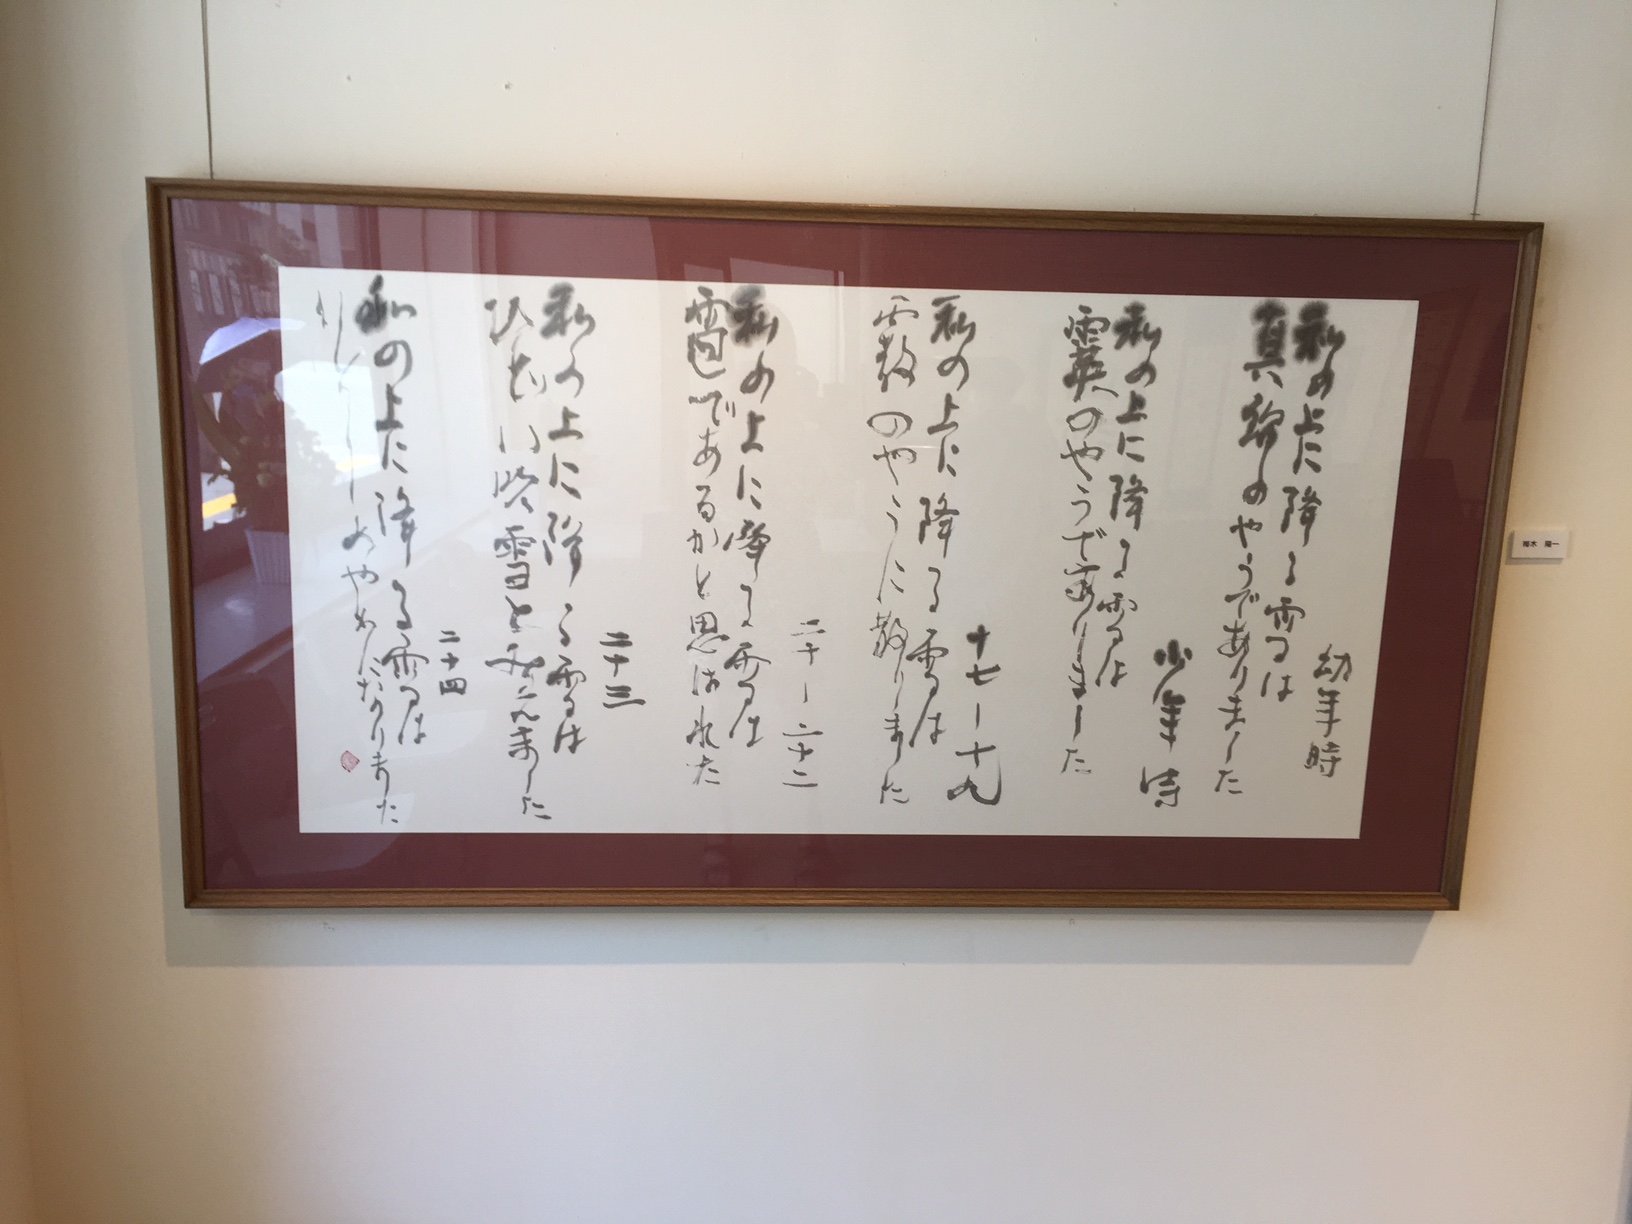 幼年時
私の上に降る雪は
真綿のやうでありました
少年時
私の上に降る雪は
霙のやうでありました
十七―十九
私の上に降る雪は
霰のやうに散りました
二十―二十二
私の上に降る雪は
雹であるかと思はれた
二十三
私の上に降る雪は
ひどい吹雪と見えました
二十四
私の上に降る雪は
いとしめやかになりました